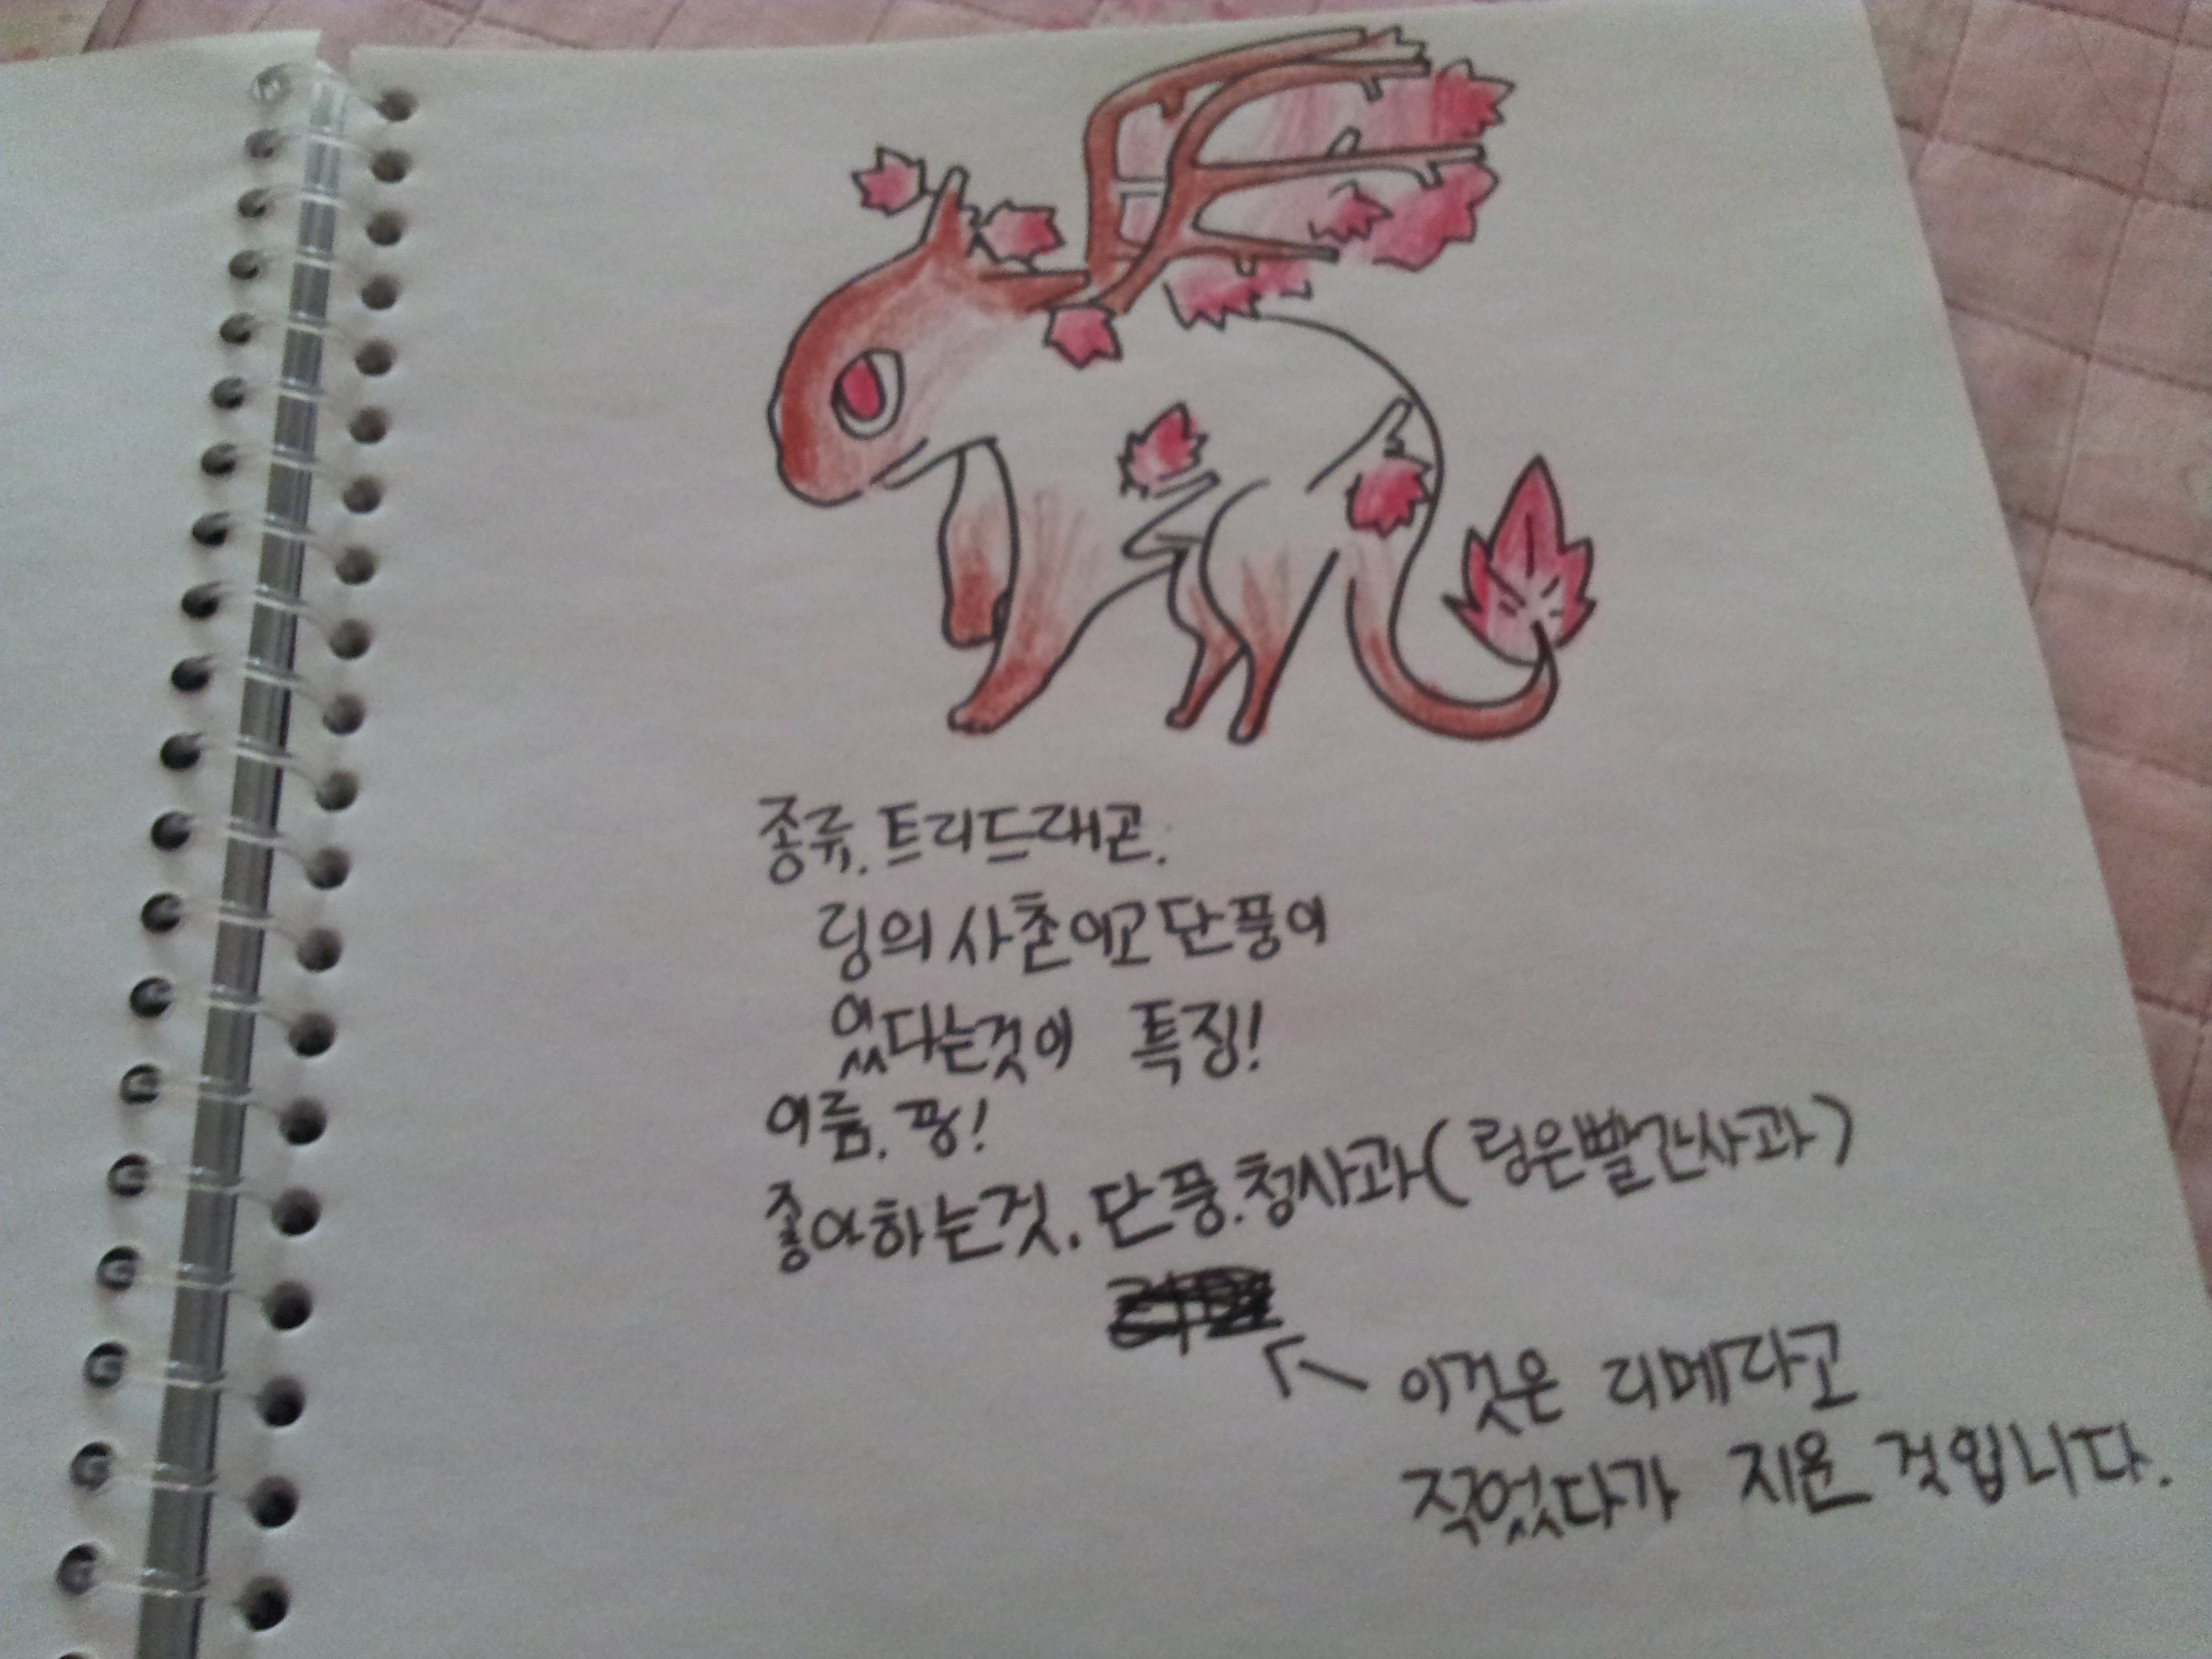 종류. 트리드래곤.
링의 사촌이고 단풍이
있다는것이 특징!
이름. 팡!
좋아하는것. 단풍. 청사과(링은빨간사과)
이것은 리메라고
적었다가 지운 것입니다.